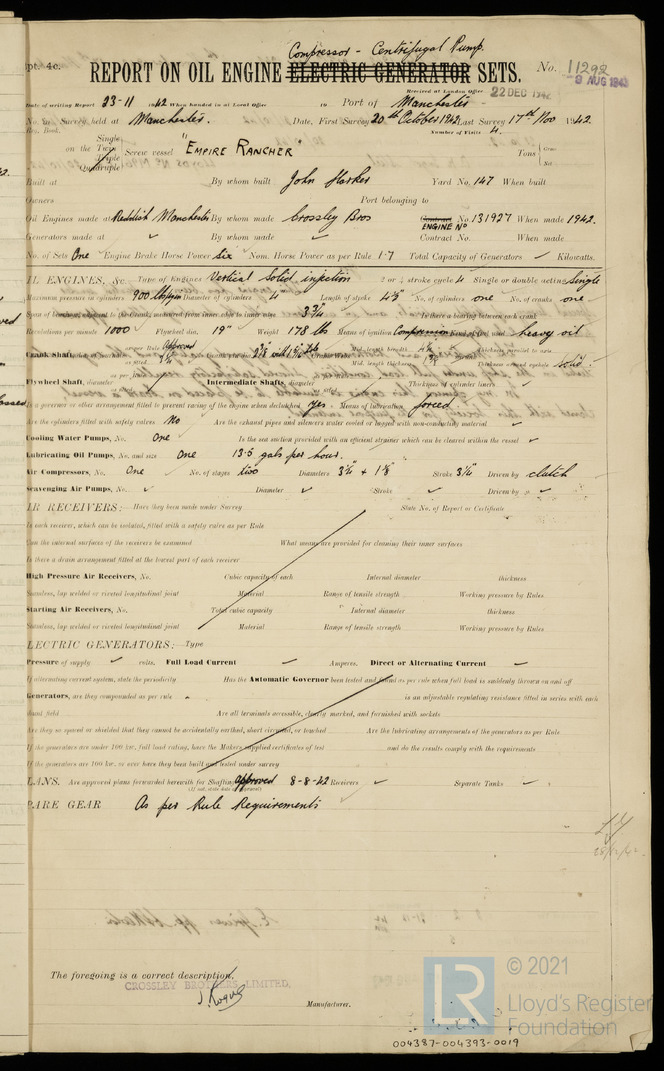 Compressor - Centrifugal Pump.
pt. 4c. REPORT ON OIL ENGINE ELECTRIC GENERATOR SETS. No. 11292
Received at London Office 22 DEC 1942 9 AUG 1943
Date of writing Report 23-11 1942 When handed in at Local Office 10 Port of Manchester
No. in Survey held at Manchester. Date, First Survey 20th October 1942 Last Survey 17th Nov 1942.
Reg. Book. Number of Visits 4.
on the Single Twin Triple Quadruple Screw vessel "EMPIRE RANCHER" Tons Gross Net
Built at By whom built John Harker Yard No. 147 When built
Owners Port belonging to
Oil Engines made at Reddish Manchester By whom made Crossley Bros Contract ENGINE No No. 131927 When made 1942.
Generators made at ✓ By whom made ✓ Contract No. When made
No. of Sets One Engine Brake Horse Power Six Nom. Horse Power as per Rule 1.7 Total Capacity of Generators ✓ Kilowatts.
IL ENGINES, &c. Type of Engines Vertical Solid injection 2 or 4 stroke cycle 4 Single or double acting Single
Maximum pressure in cylinders 900 lbs/sq in Diameter of cylinders 4 Length of stroke 4½" No. of cylinders one No. of cranks one
Span of bearings, adjacent to the Crank, measured from inner edge to inner edge 3¾" Is there a bearing between each crank
Revolutions per minute 1000 Flywheel dia. 19" Weight 178 lbs Means of ignition Compression Kind of fuel used heavy oil
Crank Shaft, Solid
Flywheel Shaft, diameter Intermediate Shafts, diameter Thickness of cylinder liners ✓
Is a governor or other arrangement fitted to prevent racing of the engine when declutched yes - Means of lubrication forced
Are the cylinders fitted with safety valves No Are the exhaust pipes and silencers water cooled or lagged with non-conducting material ✓
Cooling Water Pumps, No. One Is the sea suction provided with an efficient strainer which can be cleared within the vessel ✓
Lubricating Oil Pumps, No. and size One 13.5 gals per hour.
Air Compressors, No. One No. of stages two Diameters 3¾ + 1⅜ Stroke 3¼" Driven by clutch
Scavenging Air Pumps, No. ✓ Diameter ✓ Stroke ✓ Driven by ✓
IR RECEIVERS:- Have they been made under Survey State No. of Report or Certificate
Is each receiver, which can be isolated, fitted with a safety valve as per Rule
Can the internal surfaces of the receivers be examined What means are provided for cleaning their inner surfaces
Is there a drain arrangement fitted at the lowest part of each receiver
High Pressure Air Receivers, No. Cubic capacity of each Internal diameter thickness
Seamless, lap welded or riveted longitudinal joint Material Range of tensile strength Working pressure by Rules
Starting Air Receivers, No. Total cubic capacity Internal diameter thickness
Seamless, lap welded or riveted longitudinal joint Material Range of tensile strength Working pressure by Rules
LECTRIC GENERATORS:- Type
Pressure of supply ✓ volts. Full Load Current ✓ Amperes. Direct or Alternating Current ✓
If alternating current system, state the periodicity Has the Automatic Governor been tested and found as per rule when full load is suddenly thrown on and off
Generators, are they compounded as per rule is an adjustable regulating resistance fitted in series with each
shunt field Are all terminals accessible, clearly marked, and furnished with sockets
Are they so spaced or shielded that they cannot be accidentally earthed, short circuited, or touched Are the lubricating arrangements of the generators as per Rule
If the generators are under 100 kw. full load rating, have the Makers supplied certificates of test and do the results comply with the requirements
If the generators are 100 kw. or over have they been built and tested under survey
LANS. Are approved plans forwarded herewith for Shafting Approved 8-8-42 Receivers ✓ Separate Tanks ✓
(If not, state date of approval)
PARE GEAR As per Rule Requirements
The foregoing is a correct description,
CROSSLEY BROTHERS LIMITED,
Manufacturer.
LR © 2021
Lloyd's Register
Foundation
004387-004393-0019